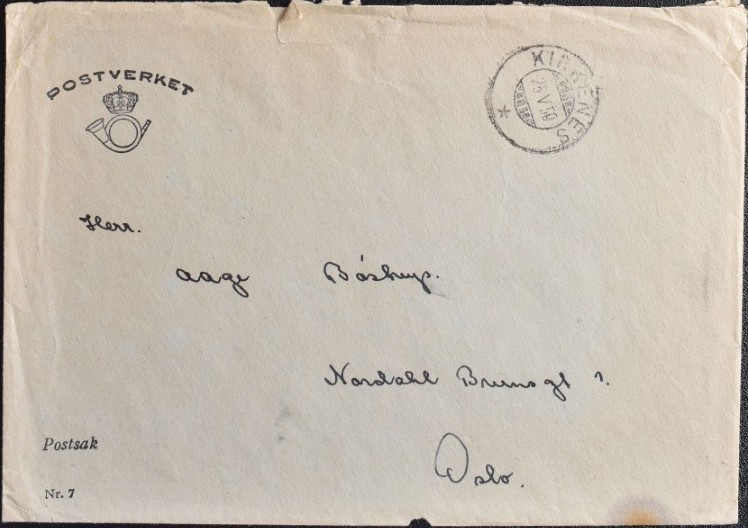 POSTVERKET
KIRKENES
* 25 V 50
Herr.
Aage
Nordahl Brunsgt 1.
Oslo.
Postsak
Nr. 7